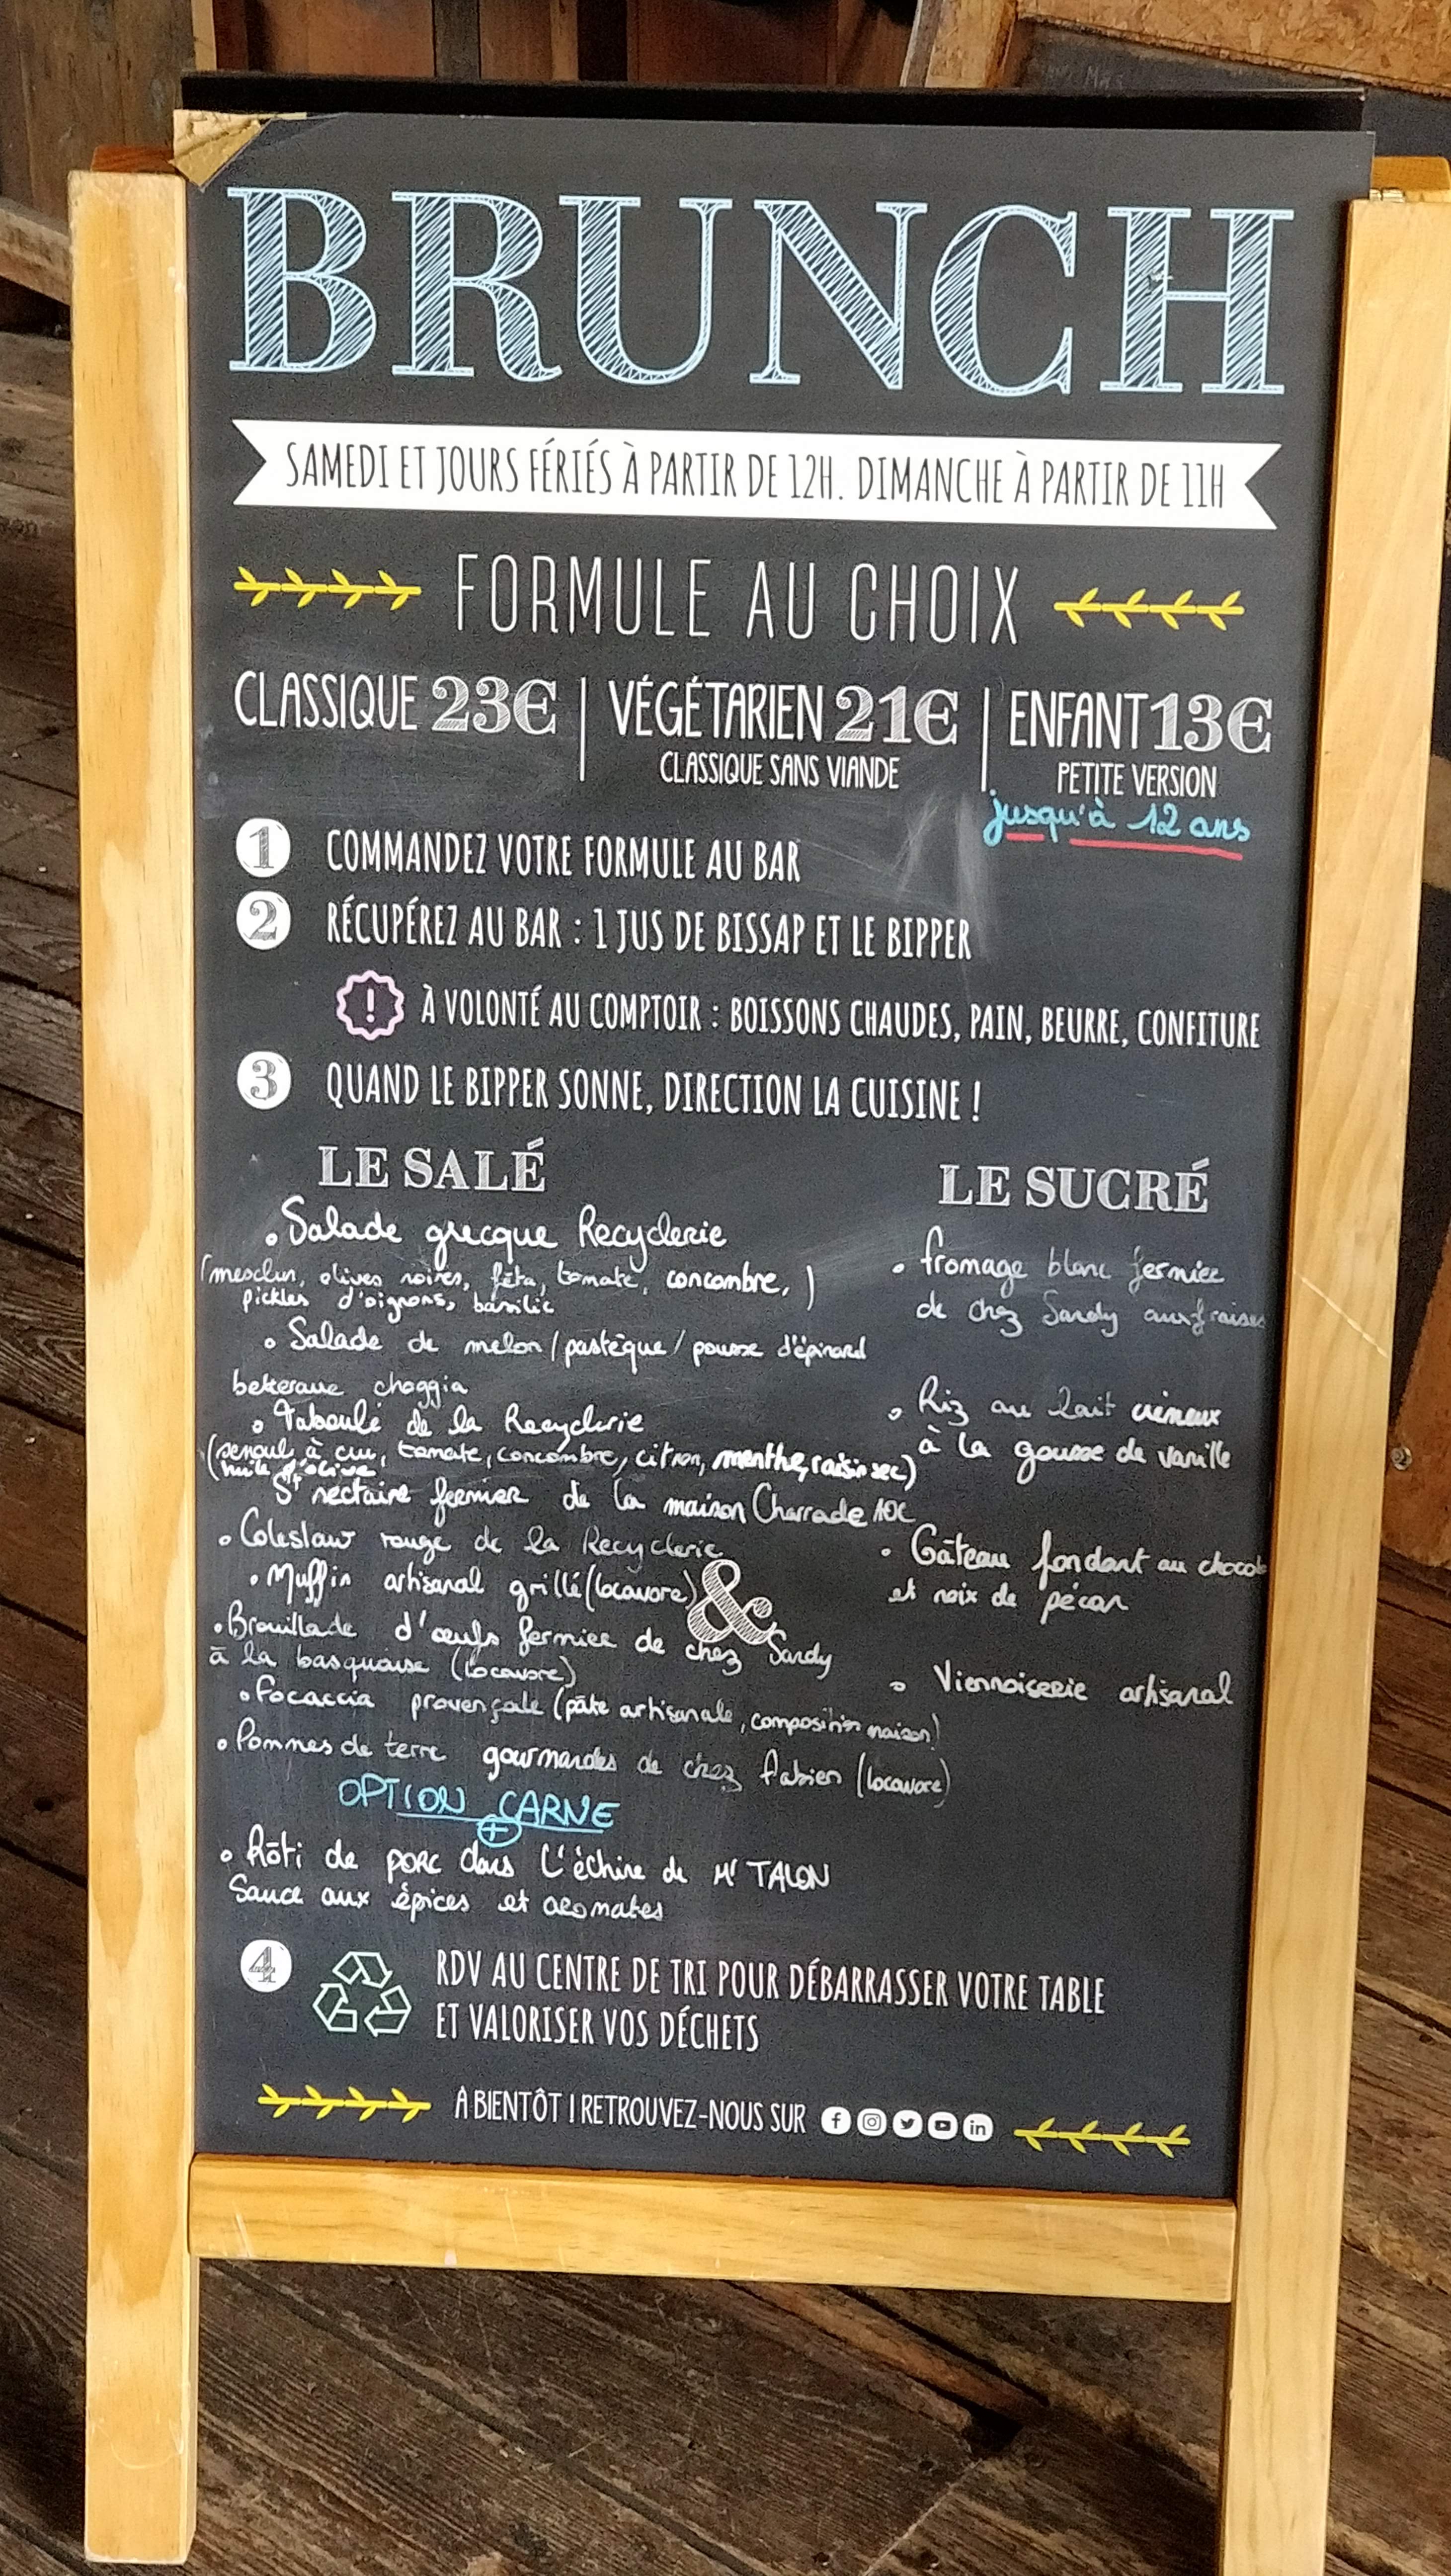 BRUNCH
SAMEDI ET JOURS FÉRIÉS À PARTIR DE 12H. DIMANCHE À PARTIR DE 11H
FORMULE AU CHOIX
CLASSIQUE 23€ | VÉGÉTARIEN 21€ | ENFANT 13€
CLASSIQUE SANS VIANDE
PETITE VERSION
jusqu'à 12 ans
1 COMMANDEZ VOTRE FORMULE AU BAR
2 RÉCUPÉREZ AU BAR : 1 JUS DE BISSAP ET LE BIPPER
! À VOLONTÉ AU COMPTOIR : BOISSONS CHAUDES, PAIN, BEURRE, CONFITURE
3 QUAND LE BIPPER SONNE, DIRECTION LA CUISINE !
LE SALÉ
• Salade grecque Recyclerie
(mesclun, olives noires, fêta, tomate, concombre, )
pickles d'oignons, basilic
• Salade de melon / pastèque / pousse d'épinard
betterave choggia
• Taboulé de la Recyclerie
(semoule à cru, tomate, concombre, citron, menthe, raisin sec)
huile d'olive
St nectaire fermier de la maison Charrade AOC
• Coleslaw rouge de la Recyclerie
• Muffin artisanal grillé (locavore)
• Brouillade d'œufs fermier de chez Sandy
à la basquaise (locavore)
• Focaccia provençale (pâte artisanale, composition maison)
• Pommes de terre gourmandes de chez Fabien (locavore)
OPTION CARNE
+
• Rôti de porc dans L'échine de Mr TALON
Sauce aux épices et aromates
&
LE SUCRÉ
• fromage blanc fermier
de chez Sandy aux fraises
• Riz au lait crémeux
à la gousse de vanille
• Gâteau fondant au chocolat
et noix de pécan
• Viennoiserie artisanal
4 RDV AU CENTRE DE TRI POUR DÉBARRASSER VOTRE TABLE
ET VALORISER VOS DÉCHETS
A BIENTÔT ! RETROUVEZ-NOUS SUR